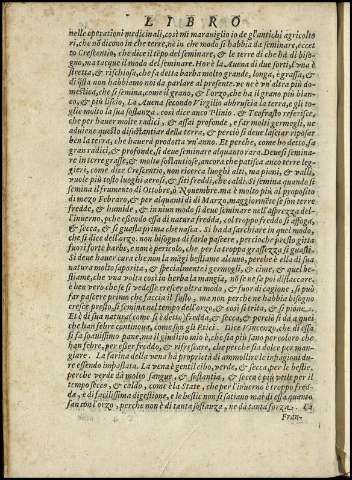 LIBRO
nelle operationi medicinali, così mi maraviglio io de gl'antichi agricolto
ri, che nõ dicono in che terre, nè in che modo si habbia da seminare, eccet
to Crescentio, che dice il tẽpo del seminare, & le terre di che ha di biso-
gno, ma tacque il modo del seminare. Hor è la Auena di due sorti, l'vna è
stretta, & rischiosa, che fa detta barba molto grande, longa, è grassa, &
di q̃sta non habbiamo noi da parlare al presente. ve ne è vn'altra più do-
mestica, che si semina, come il grano, & l'orzo, che ha il grano più bian-
co, & più liscio. La Auena secondo Virgilio abbruscia la terra, e gli to-
glie molto la sua sostãza. così dice anco Plinio, & Teofrasto referisce,
che per hauer molte radici, & assai profonde, e far molti germogli, ne
aduiene questo disustantiar della terra, & perciò si deue lasciar riposar
ben la terra, che hauerà prodotta vn'anno. Et perche, come ho detto, fa
gran radici, & profonde, si deue seminar alquanto rara. Deuesi semina-
re in terre grasse, & molto sostantiose, ancora che patisca anco terre leg-
gieri, come dice Crescentio, non ricerca luoghi alti, ma piani, & valli,
vuole più tosto luoghi aerosi, & siti freddi, che caldi. Si semina quando si
semina il frumento di Ottobre, ò Nouembre. ma è molto più al proposito
di mezo Febraro, & per alquanti dì di Marzo, maggiormẽte se son terre
fredde, & humide, & in niun modo si deue seminare nell'asprezza del-
l'inuerno, perche essendo essa di natura fredda, col troppo freddo si affoga,
& secca, & si guasta prima che nasca. Si ha da sarchiare in quel modo,
che si dice dell'orzo. non bisogna di farla pascere, perciche presto gitta
fuori forte barba, e non è pericolo, che per la troppo grassezza si guasti.
Si deue hauer cura che non la mãgi bestiame alcuno, perche è ella di sua
natura molto saporita, & specialmente i germogli, & cime, & quel be-
stiame, che vna volta così in herba la mangia, nõ se ne sa poi distaccare,
è ben vero che se si vedesse crescer oltra modo, & fuor di cagione, si può
far pascere prima che faccia il fusto, ma non perche ne habbia bisogno
cresce presto, si semina nel tempo dell'orzo, & così si trita, & si pione.
Et è di sua natura, come si è detto, fredda, & secca, & perciò si dà a quei
che han febre continoua, come son gli Etici. Dice Vincenzo, che di essa
si fa soauissimo pane, ma il giuditio mio è, che sia più sano per coloro che
han febre, per esser freddo, & rifrescare, che perche sia dolce per man-
giare. La farina della vena ha proprietà di ammollire le infiagioni du-
re essendo impostata. La vena è gentil cibo, verde, & secca, per le bestie.
perche verde dà molto sangue, & sostantia, & secca è più utile per il
tempo secco, & caldo, come è la State, che per l'inuerno è troppo fred-
da, è di facilissima digestione, e le bestie non si satiano mai di essa quanto
fan con l'orzo, perche non è di tanta sostanza, ne dà tanta forza. La
Fran-